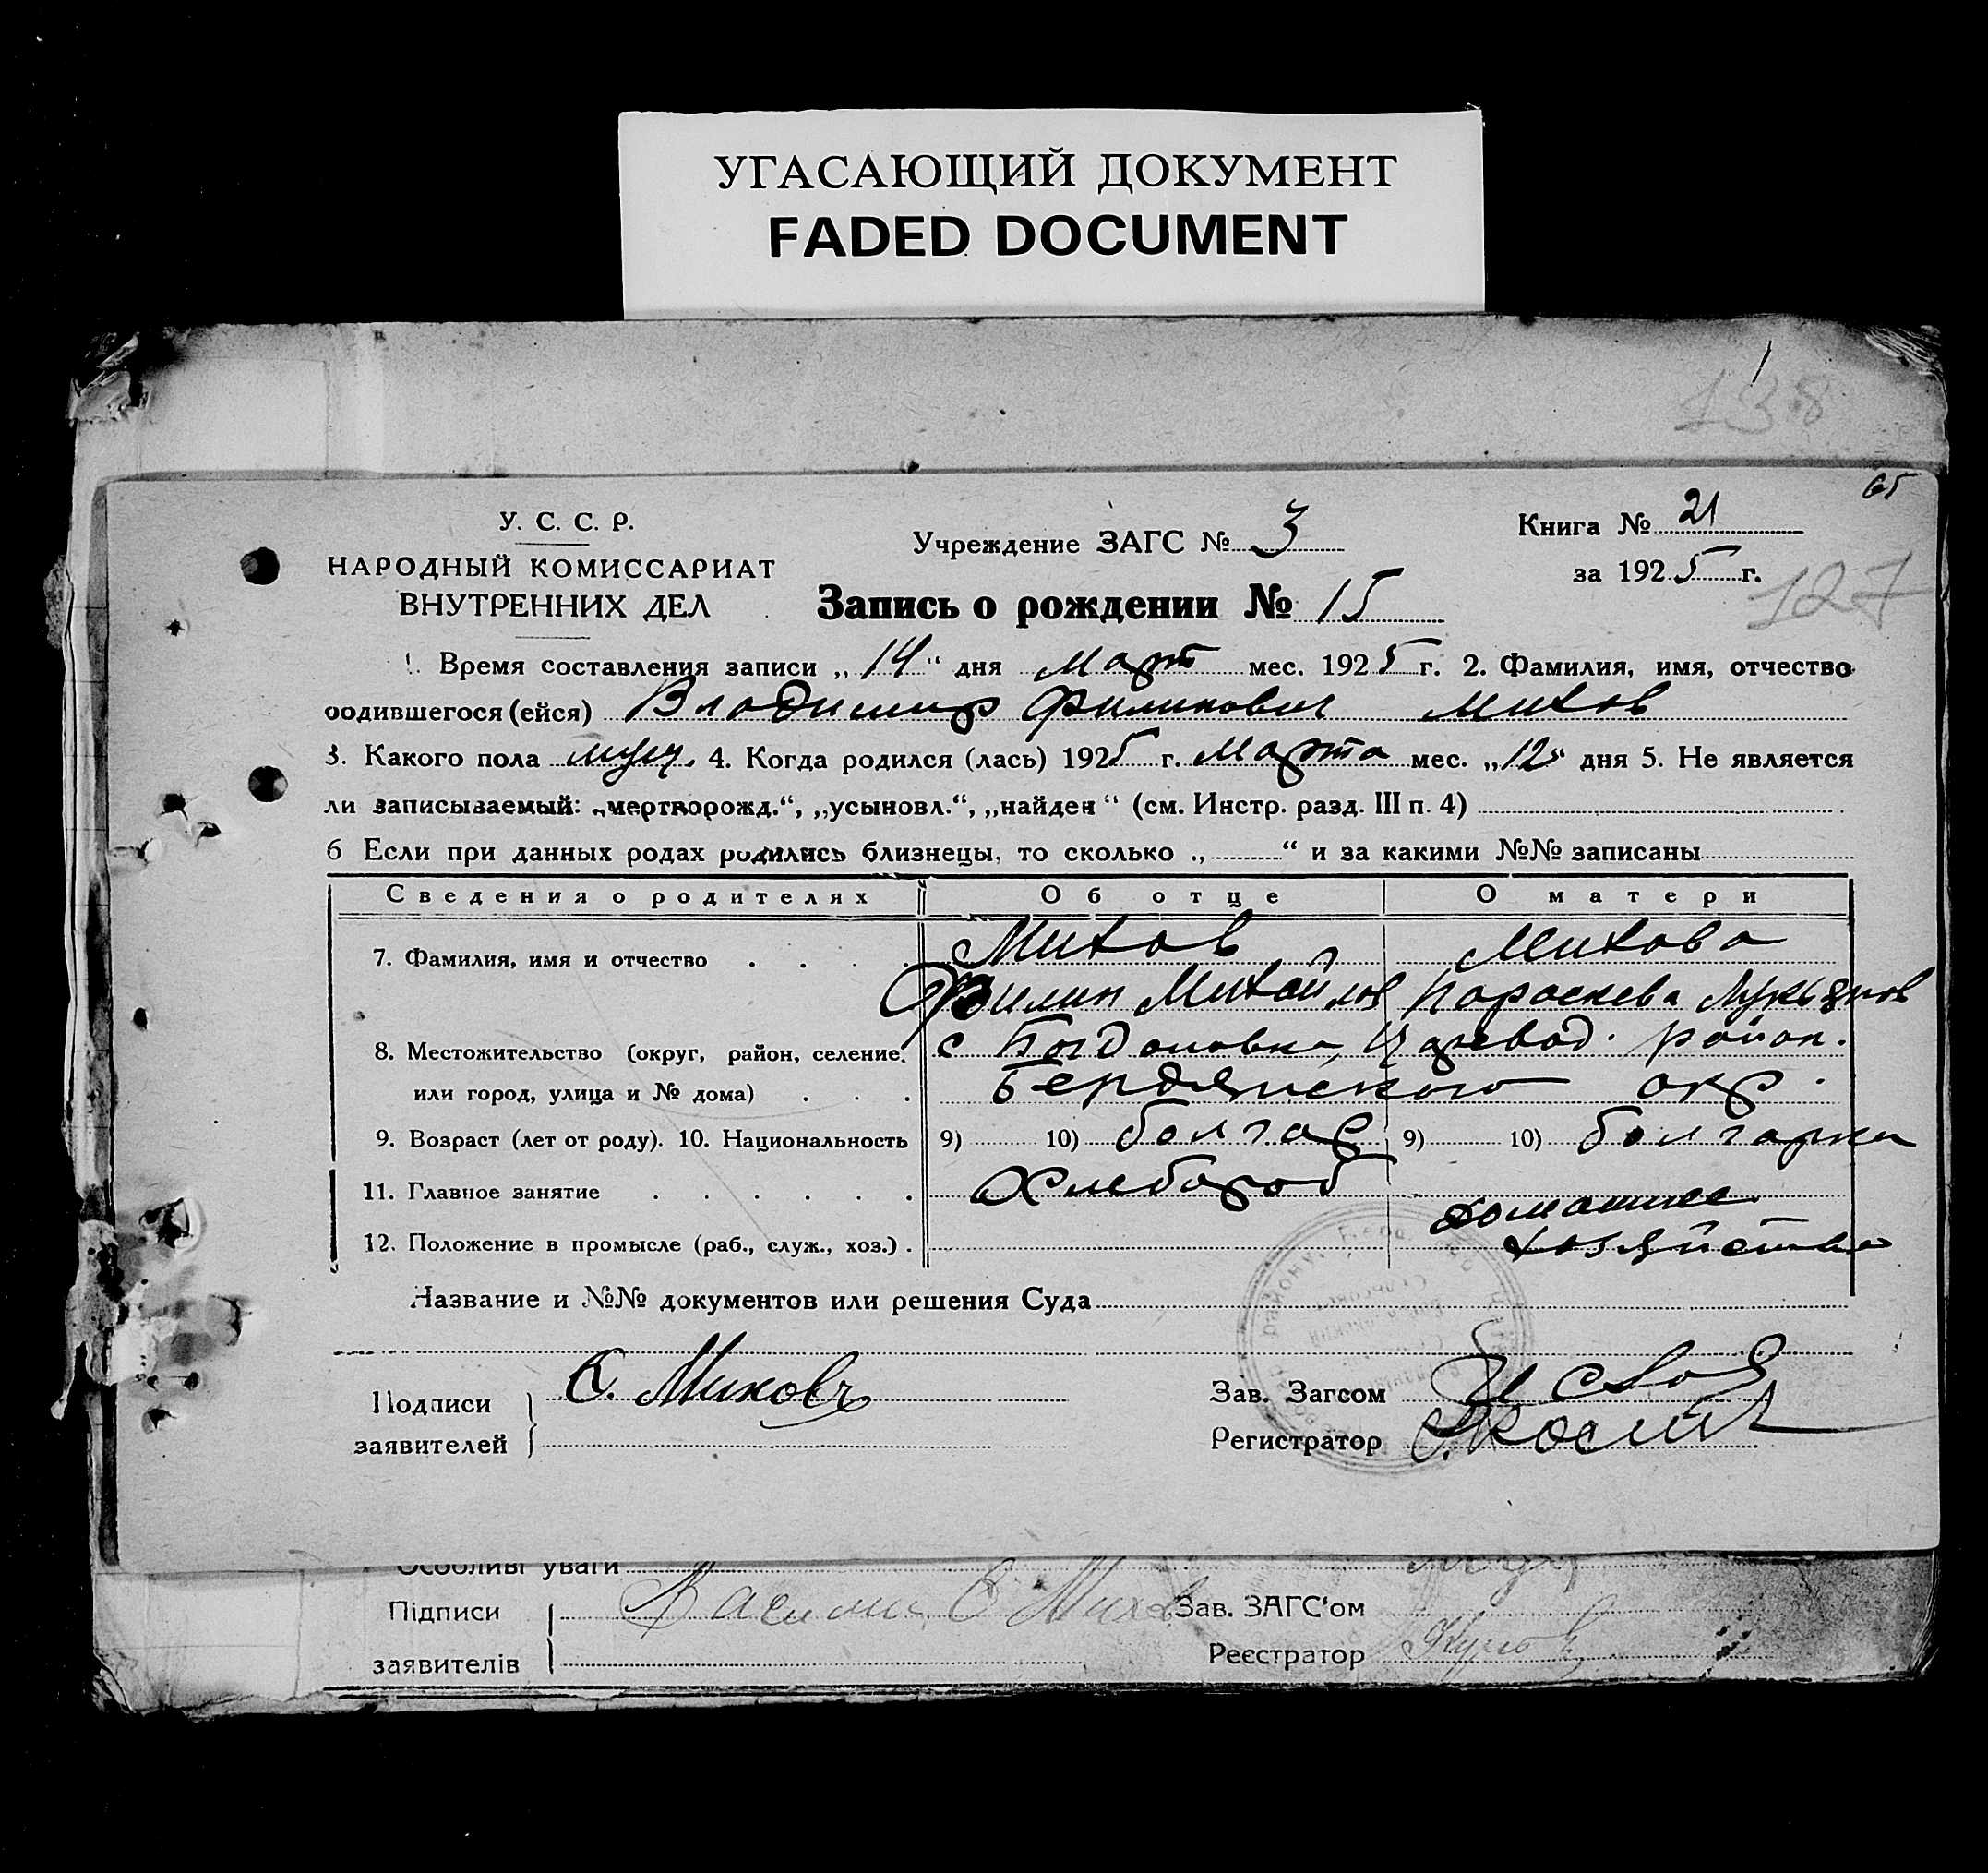 УГАСАЮЩИЙ ДОКУМЕНТ
FADED DOCUMENT
138
65
У. С. С. Р.
НАРОДНЫЙ КОМИССАРИАТ
ВНУТРЕННИХ ДЕЛ
Учреждение ЗАГС № 3
Книга № 21
за 1925 г.
127
Запись о рождении № 15
1. Время составления записи „14“ дня Март мес. 1925 г. 2. Фамилия, имя, отчество
родившегося (ейся) Владимир Филипович Михов
3. Какого пола муж. 4. Когда родился (лась) 1925 г. Марта мес. „12“ дня 5. Не является
ли записываемый: „мертворожд.“, „усыновл.“, „найден“ (см. Инстр. разд. III п. 4)
6 Если при данных родах родились близнецы, то сколько „ “ и за какими №№ записаны
Сведения о родителях Об отце О матери
7. Фамилия, имя и отчество Михов Михова
Филип Михайлов Параскева Лукьянов
8. Местожительство (округ, район, селение, с Богдановка, Царевод. район.
или город, улица и № дома) Бердянского окр.
9. Возраст (лет от роду). 10. Национальность 9) 10) болгар 9) 10) болгарка
11. Главное занятие Хлебороб домашнее
12. Положение в промысле (раб., служ., хоз.) хозяйство
Название и №№ документов или решения Суда
Подписи С. Миховъ Зав. Загсом
заявителей Регистратор
Особливі уваги
Підписи Зав. ЗАГС'ом
заявителів Реєстратор